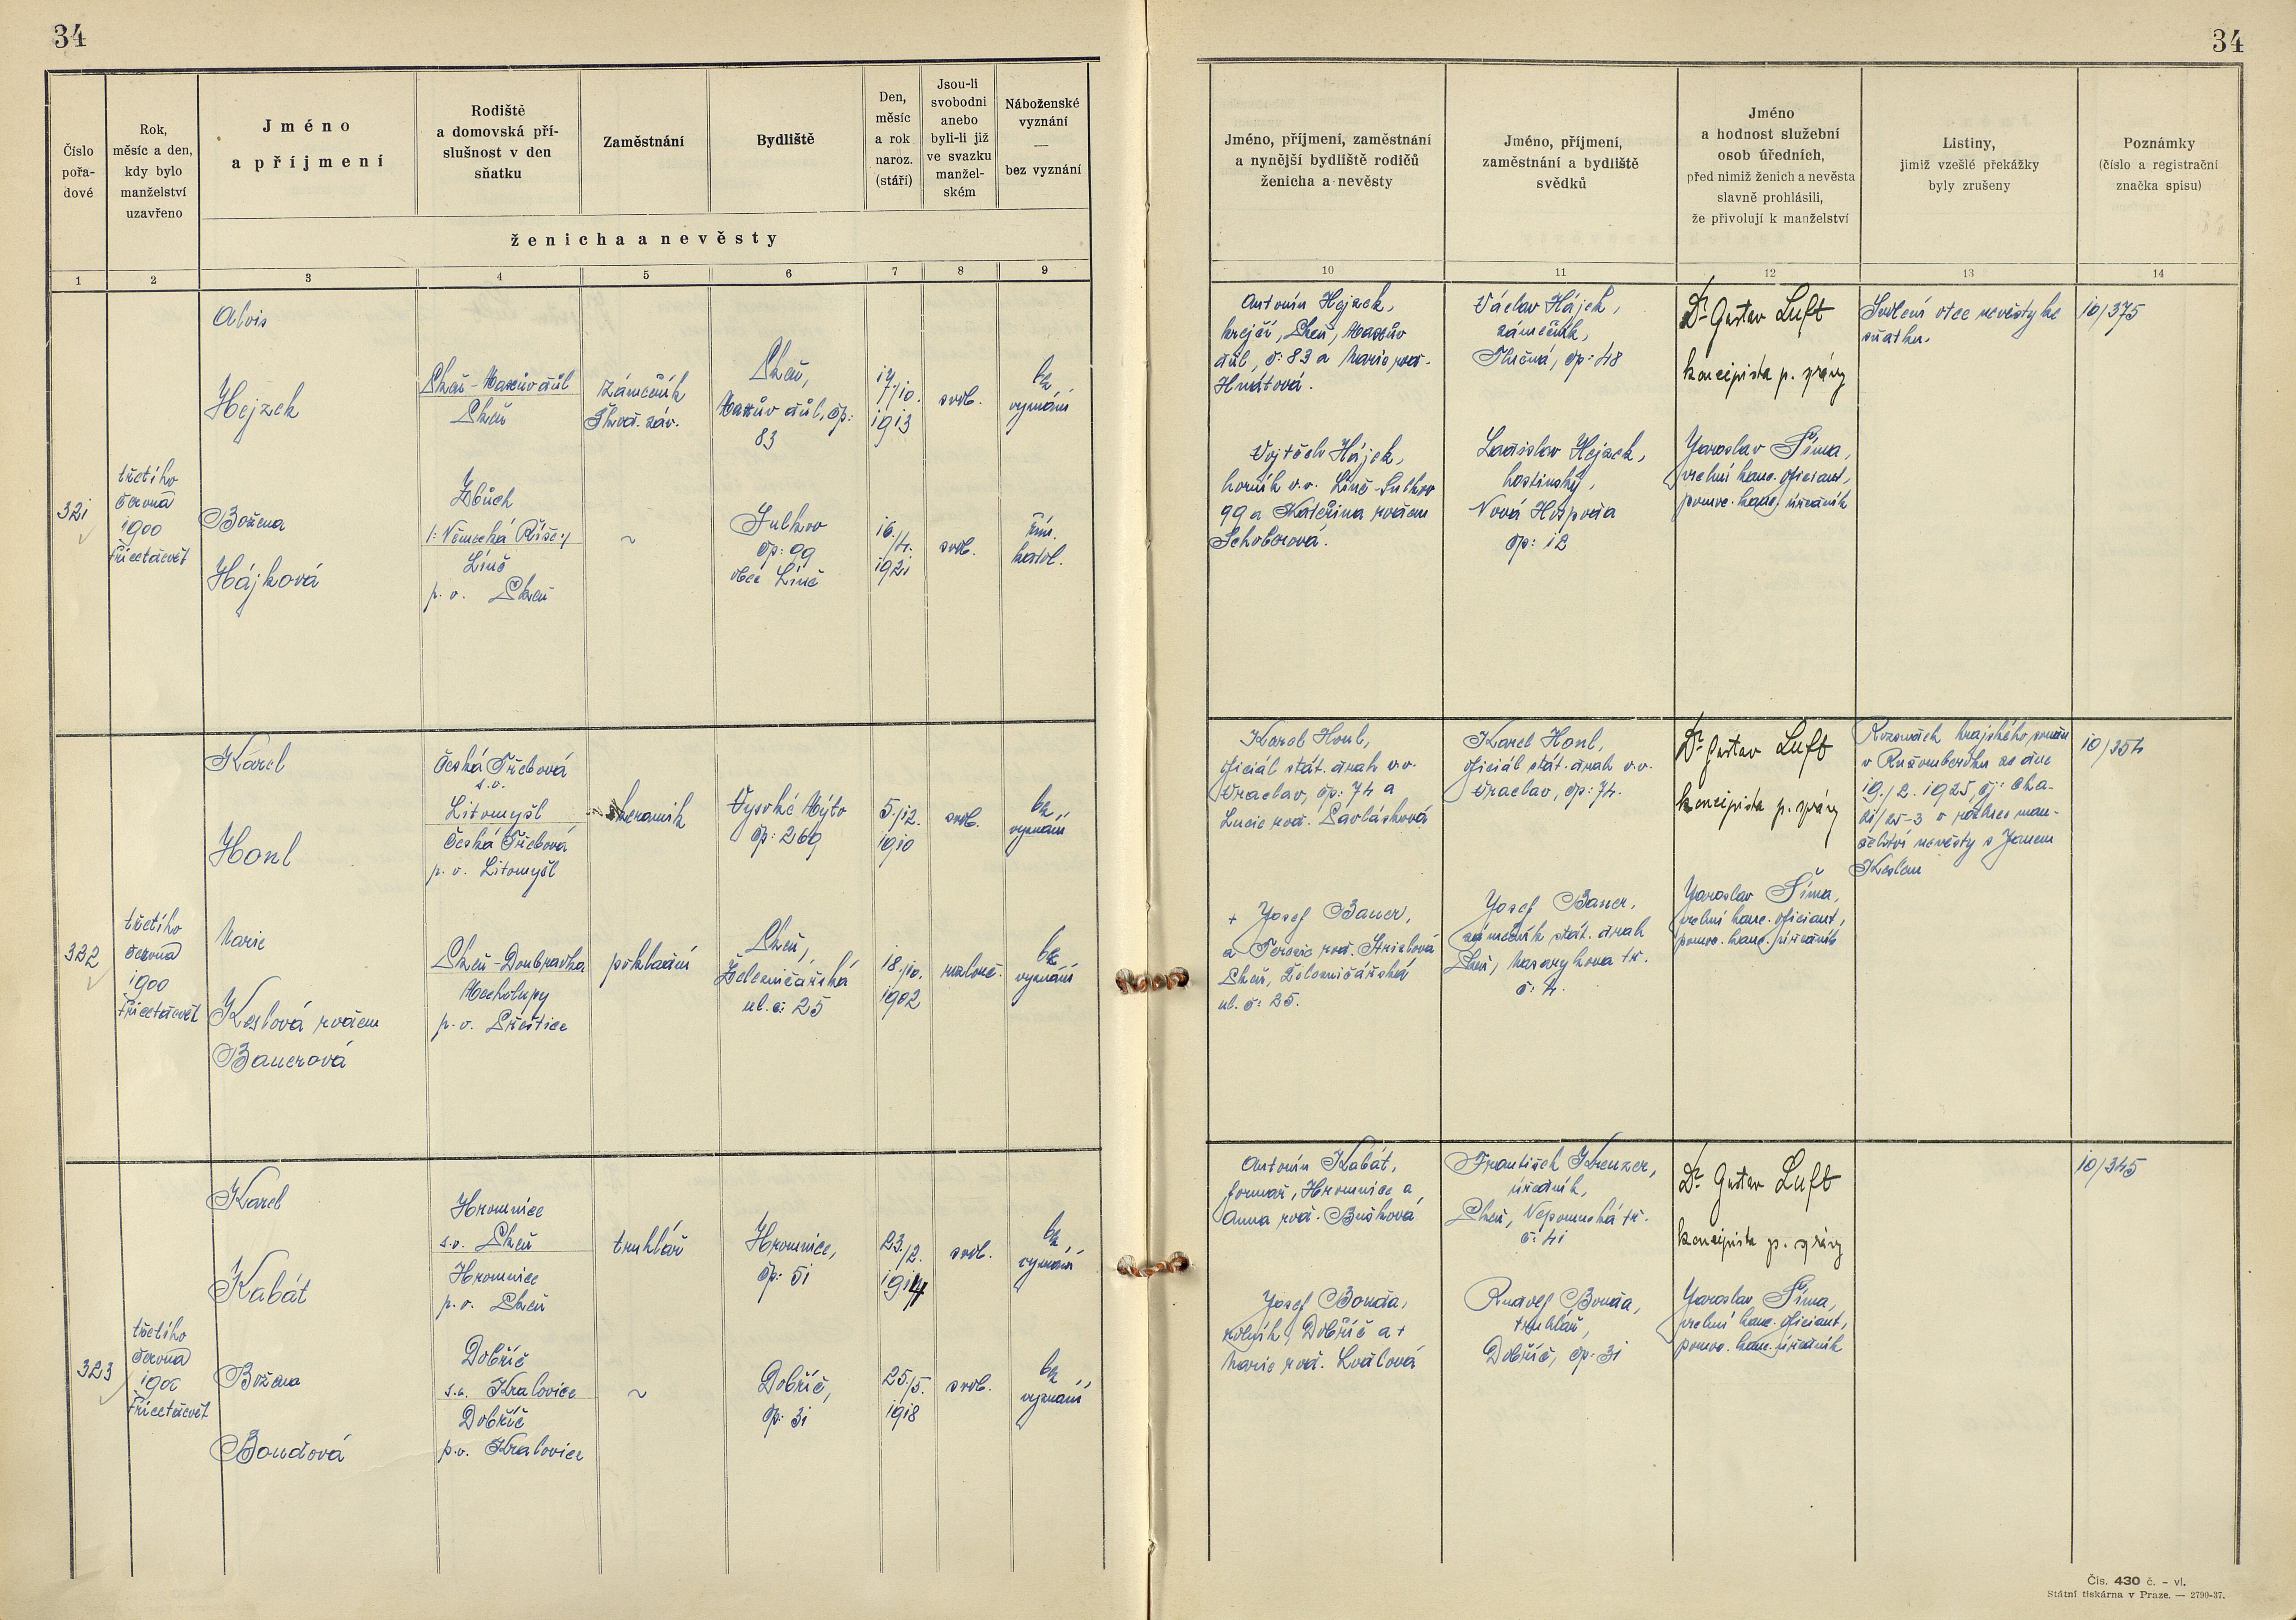 34
34
Číslo pořa-dové
Rok, měsíc a den, kdy bylo manželství uzavřeno
Jméno a příjmení
Rodiště a domovská pří-slušnost v den sňatku
Zaměstnání
Bydliště
Den, měsíc a rok naroz. (stáří)
Jsou-li svobodni anebo byli-li již ve svazku manžel-ském
Náboženské vyznání — bez vyznání
ženicha a nevěsty
Jméno, příjmení, zaměstnání a nynější bydliště rodičů ženicha a nevěsty
Jméno, příjmení, zaměstnání a bydliště svědků
Jméno a hodnost služební osob úředních, před nimiž ženich a nevěsta slavně prohlásili, že přivolují k manželství
Listiny, jimiž vzešlé překážky byly zrušeny
Poznámky (číslo a registrační značka spisu)
1 2 3 4 5 6 7 8 9 10 11 12 13 14
321
třetího
června
1900
třicetdevět
Alois
Hejzek
Plzeň-Maxův důl
Plzeň
zámečník
Škod. záv.
Plzeň,
Maxův důl, čp:
83
14/10.
1913
svob.
bez
vyznání
Božena
Hájková
Zbůch
/: Německá Říše :/
Líně
p. o. Plzeň
~
Sulkov
čp: 99
obec Líně
16./4.
1921
svob.
řím.
katol.
Antonín Hejzek,
krejčí, Plzeň, Maxův
důl, č: 83 a Marie rod.
Hnátová.
Vojtěch Hájek,
horník v.v. Líně-Sulkov
99 a Kateřina rozem
Schoberová.
Václav Hájek,
zámečník,
Tlučná, čp: 48
Ladislav Hejzek,
hostinský,
Nová Hospoda
čp: 12
Dr Gustav Luft
koncipista p. správy
Jaroslav Šíma,
vrchní kanc. oficiant,
pomoc. kanc. úředník
Svolení otce nevěsty ke
sňatku.
10/375
322
třetího
června
1900
třicetdevět
Karel
Honl
Česká Třebová
s.o.
Litomyšl
Česká Třebová
p. o. Litomyšl
keramik
Vysoké Mýto
čp: 269
5./12.
1910
svob.
bez
vyznání
Marie
Keslová rozem
Bauerová
Plzeň-Doubravka
Mecholupy
p. o. Přeštice
pokladní
Plzeň,
Železničářská
ul. č: 25
18./10.
1902
rozlouč.
bez
vyznání
Karel Honl,
oficiál stát. drah v.v.
Vraclav, čp: 74 a
Lucie rod. Pavlásková
+ Josef Bauer,
a Terezie rod.
Plzeň, Železničářská
ul. č: 25.
Karel Honl,
oficiál stát. drah v.v.
Vraclav, čp: 74.
Josef Bauer,
zámečník stát. drah
Plzeň, Masarykova tř.
č: 4.
Dr Gustav Luft
koncipista p. správy
Jaroslav Šíma,
vrchní kanc. oficiant,
pomoc. kanc. úředník
Rozsudek krajského soudu
v Ružomberku ze dne
19./2. 1925, čj:
o rozluce man-
želství nevěsty s Janem
Keslem
10/354
323
třetího
června
1900
třicetdevět
Karel
Kabát
Hromnice
s.o. Plzeň
Hromnice
p. o. Plzeň
truhlář
Hromnice,
čp: 51
23./2.
1914
svob.
bez
vyznání
Božena
Boudová
Dobříč
s.o. Kralovice
Dobříč
p.o. Kralovice
~
Dobříč,
čp: 31
25./5.
1918
svob.
bez
vyznání
Antonín Kabát,
formař, Hromnice a
Anna rod. Bušková
Josef Bouda,
rolník, Dobříč a +
Marie rod. Loulová
František Kreuzer,
úředník,
Plzeň, Nepomucká tř.
č: 41
Rudolf Bouda,
truhlář,
Dobříč, čp: 31
Dr Gustav Luft
koncipista p. správy
Jaroslav Šíma,
vrchní kanc. oficiant,
pomoc. kanc. úředník
10/345
Čís. 430 č. - vl.
Státní tiskárna v Praze. — 2790-37.